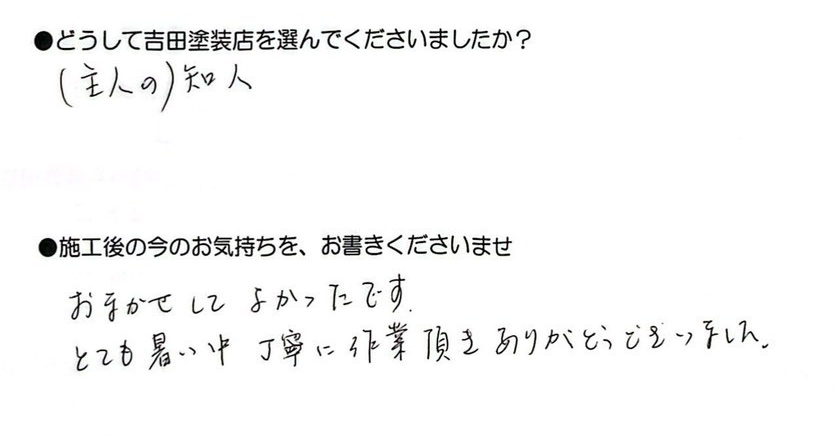 ●どうして吉田塗装店を選んでくださいましたか？
(主人の)知人
●施工後の今のお気持ちを、お書きくださいませ
おまかせして よかったです.
とても暑い中 丁寧に作業頂きありがとうございました.